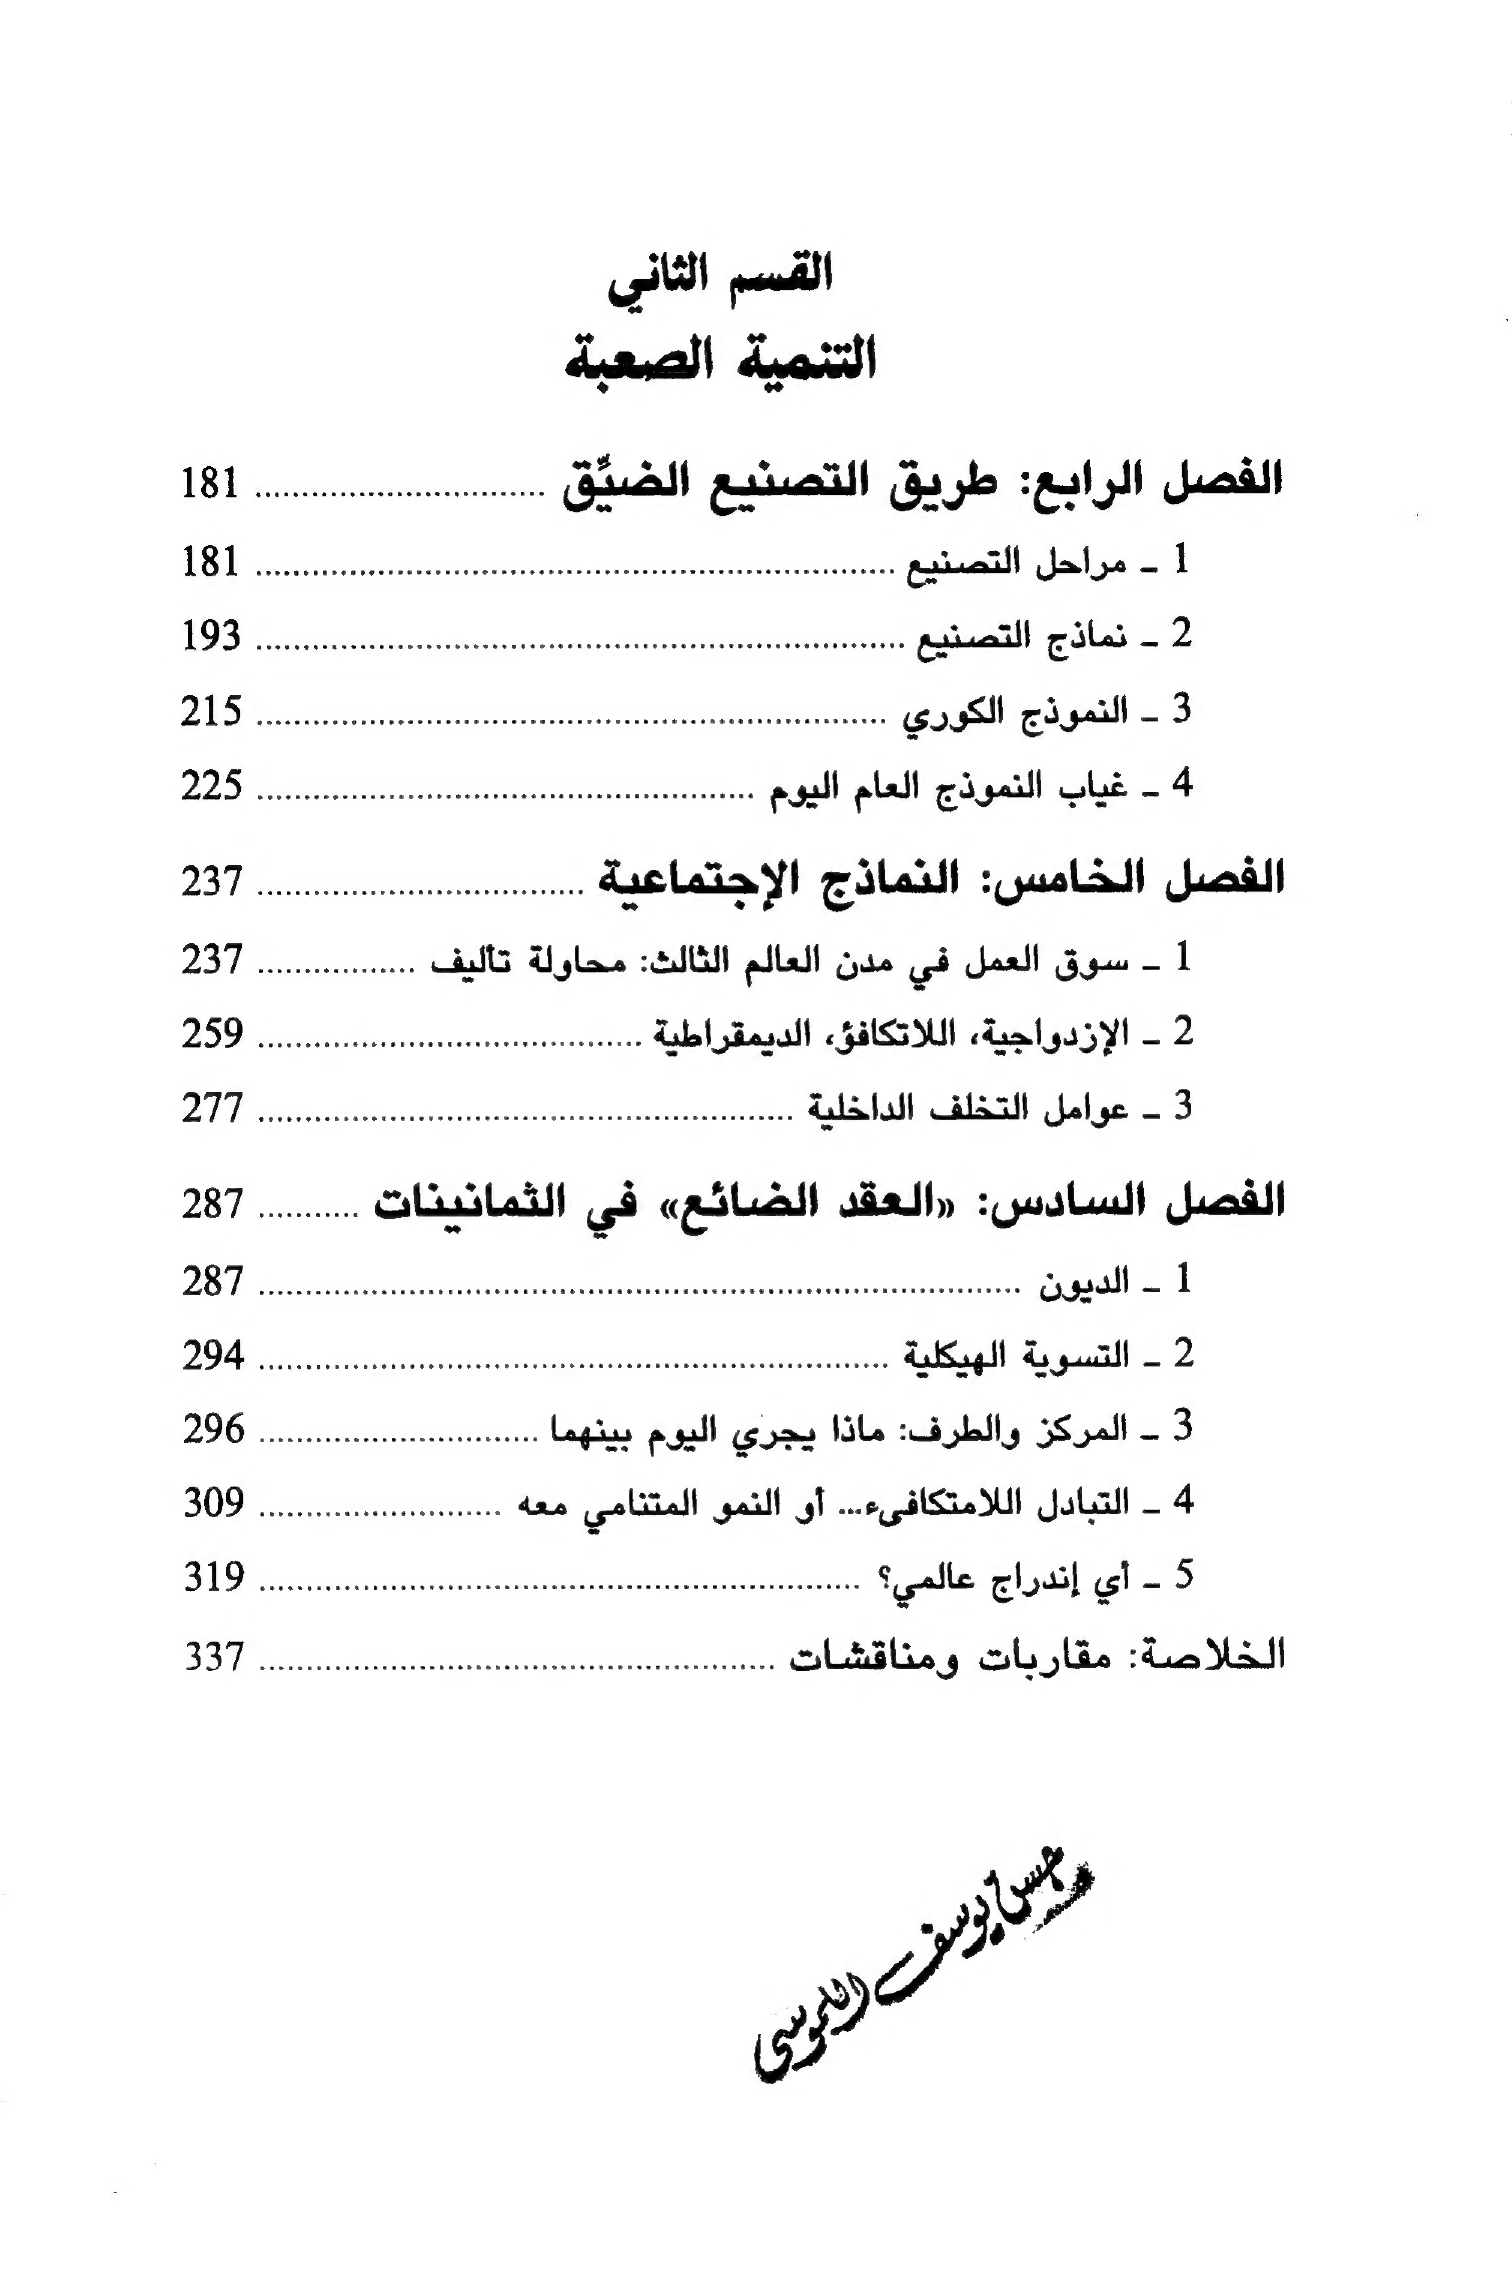 القسم الثاني
التنمية الصعبة
الفصل الرابع: طريق التصنيع الضيِّق ............................ 181
1 ـ مراحل التصنيع ............................ 181
2 ـ نماذج التصنيع ............................ 193
3 ـ النموذج الكوري ............................ 215
4 ـ غياب النموذج العام اليوم ............................ 225
الفصل الخامس: النماذج الإجتماعية ............................ 237
1 ـ سوق العمل في مدن العالم الثالث: محاولة تأليف ................ 237
2 ـ الإزدواجية، اللاتكافؤ، الديمقراطية ............................ 259
3 ـ عوامل التخلف الداخلية ............................ 277
الفصل السادس: «العقد الضائع» في الثمانينات ........... 287
1 ـ الديون ............................ 287
2 ـ التسوية الهيكلية ............................ 294
3 ـ المركز والطرف: ماذا يجري اليوم بينهما ............................ 296
4 ـ التبادل اللامتكافىء... أو النمو المتنامي معه ........................ 309
5 ـ أي إندراج عالمي؟ ............................ 319
الخلاصة: مقاربات ومناقشات ............................ 337
يوسف الموسى